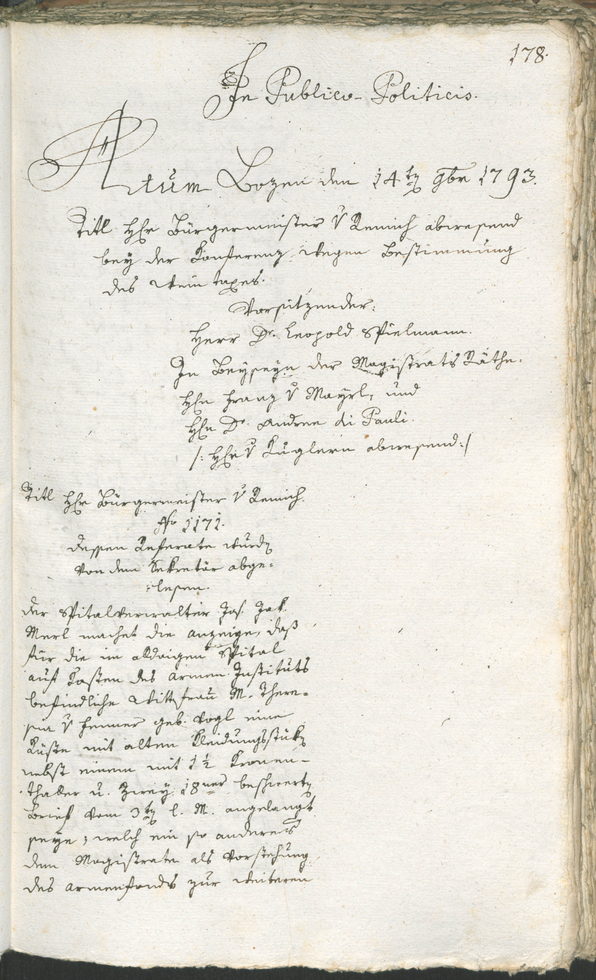 178.
In Publico-Politicis.
Actum Bozen den 14ten 9br 1793.
Titl Hhr Bürgermeister v Remich abwesend
bey der Konferenz wegen Bestimmung
des Weintaxes.
Vorsitzender:
Herr Dr. Leopold Spielmann.
In Beyseyn der Magistrats Räthe.
Hhn Franz v Mayrl, und
Hhn Dr. Andree di Pauli.
/: Hhr v Kuglern abwesend :/
Titl Hhr Bürgermeister v Remich.
Nro 1171.
Dessen Referate wurden
von dem Sekretär abge-
lesen.
Der Spitalverwalter Jos. Jak.
Merl machet die Anzeige, daß
für die im alldaigen Spital
auf Kosten des Armen Instituts
befindliche Wittfrau M. There-
sia v Fenner geb. Vogl eine
Kiste mit alten Kleidungsstüken
nebst einem mit 1½ Kronen-
thaler u. zwey 18ner beschwerten
Brief vom 3ten l. M. angelangt
seye; welch ein so anderes
dem Magistrate als Vorstehung
des Armenfonds zur weiteren